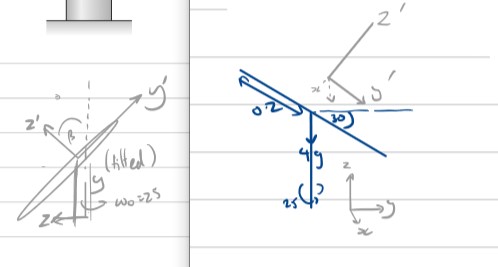 y'
z'
β
(tilted)
y
z
ω₀=25
z'
x'
y'
0.2
30
4g
25
z
y
x